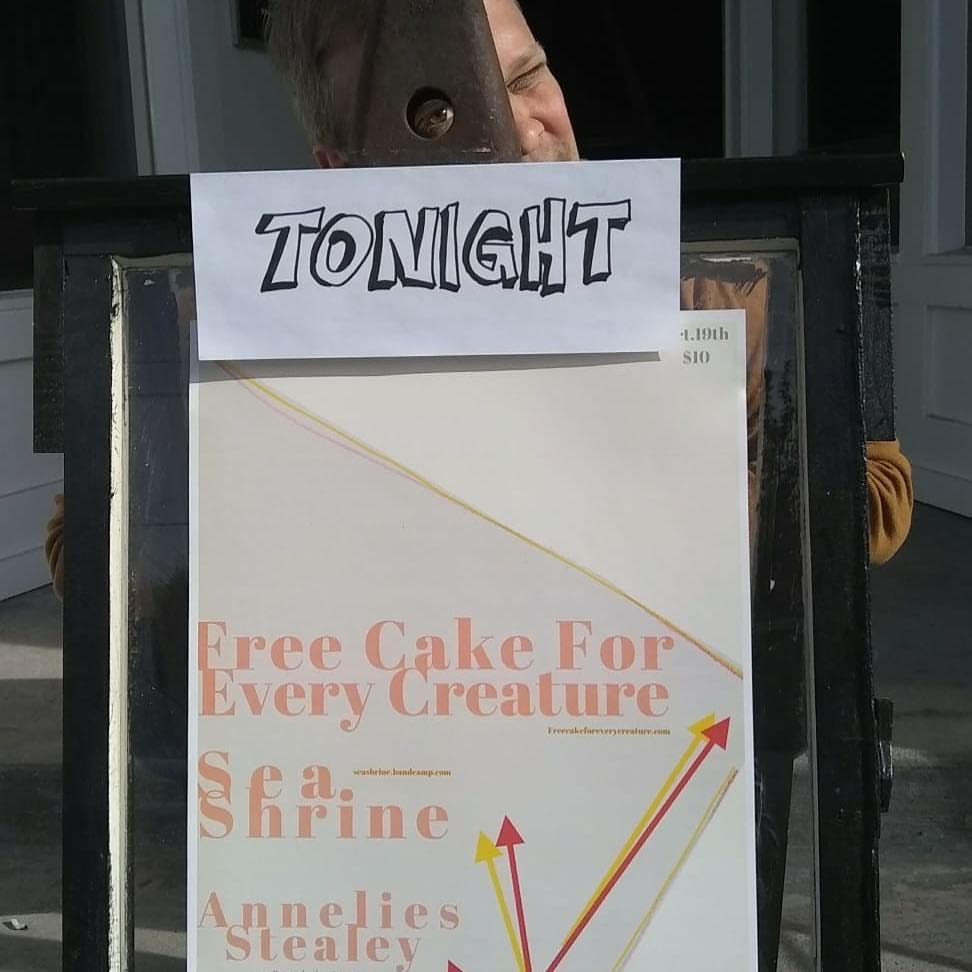 TONIGHT
t.19th
$10
Free Cake For
Every Creature
Freecakeforeverycreature.com
Sea
seashrine.bandcamp.com
Shrine
Annelies
Stealey